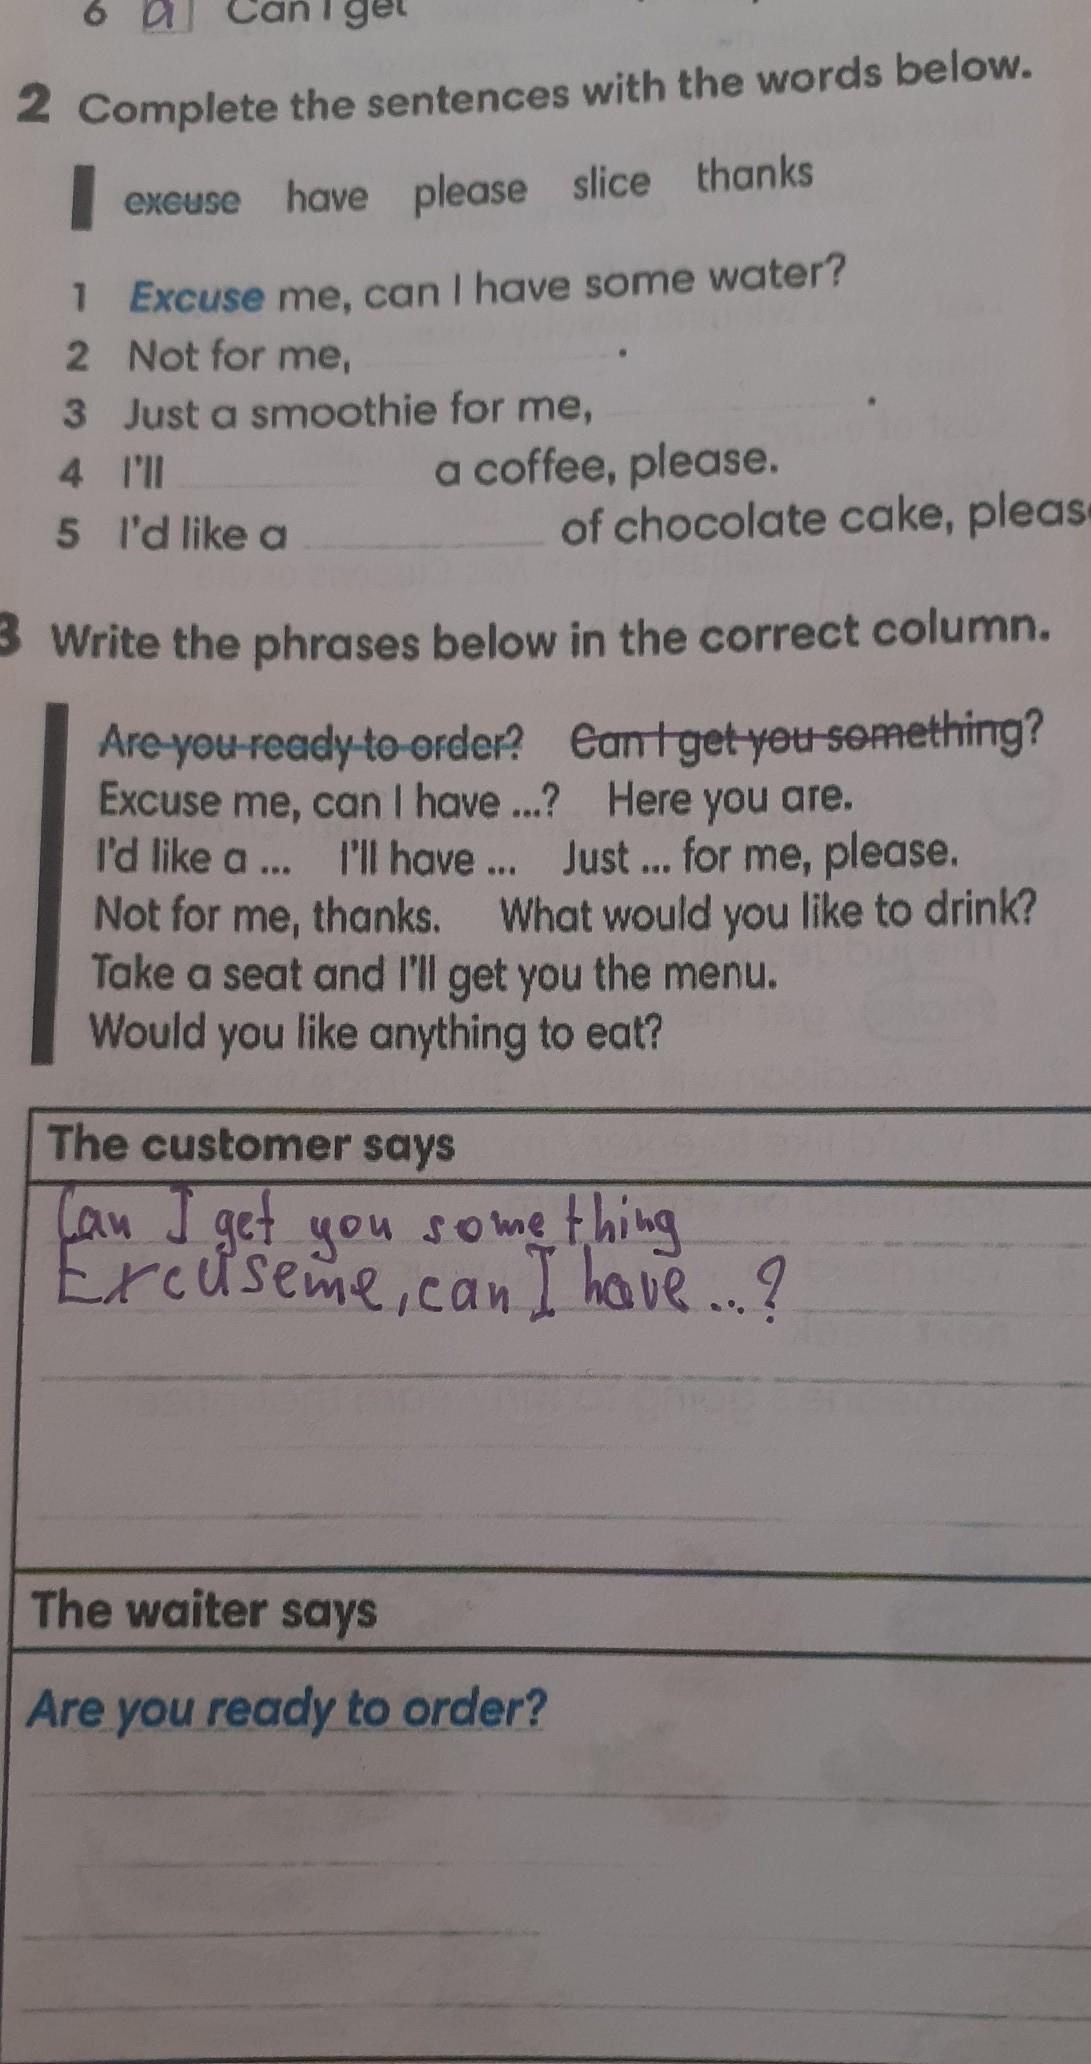 6 a Can I get
2 Complete the sentences with the words below.
excuse have please slice thanks
1 Excuse me, can I have some water?
2 Not for me, .
3 Just a smoothie for me, .
4 I'll a coffee, please.
5 I'd like a of chocolate cake, pleas
3 Write the phrases below in the correct column.
Are you ready to order? Can I get you something?
Excuse me, can I have ...? Here you are.
I'd like a ... I'll have ... Just ... for me, please.
Not for me, thanks. What would you like to drink?
Take a seat and I'll get you the menu.
Would you like anything to eat?
The customer says
Can I get you something
Excuseme, can I have ...?
The waiter says
Are you ready to order?